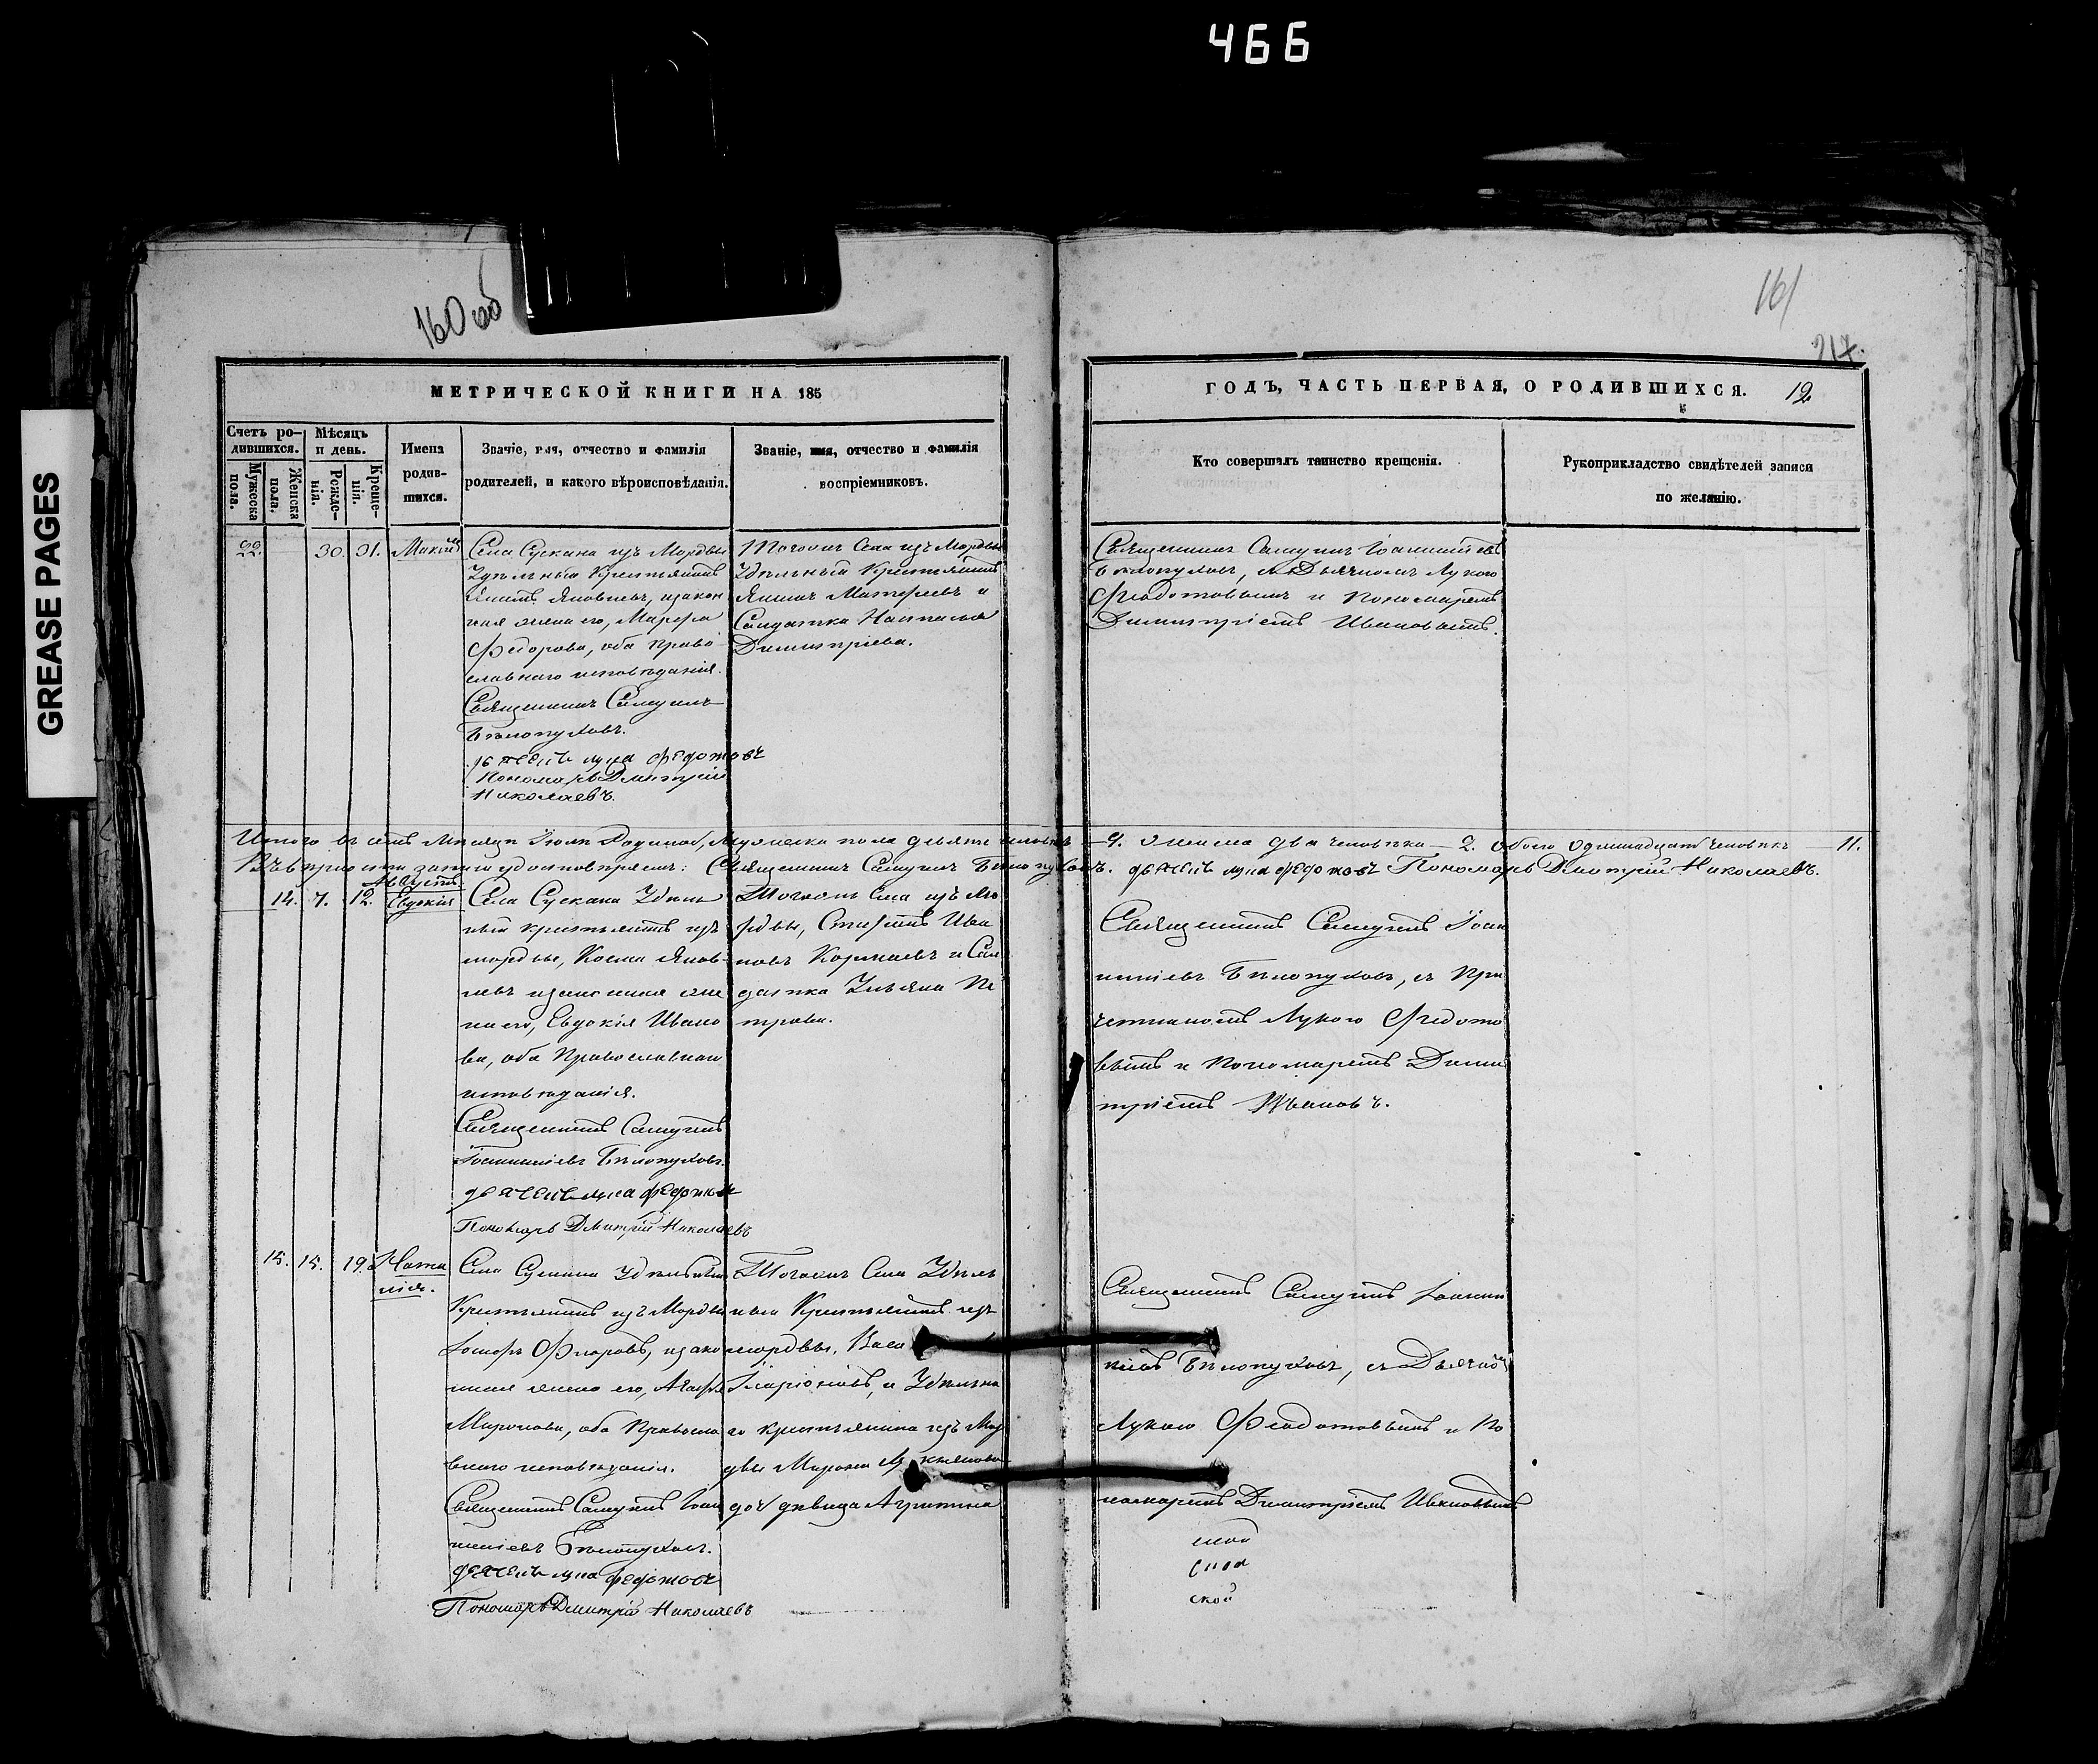 466
GREASE PAGES
160 об
161
217.
МЕТРИЧЕСКОЙ КНИГИ НА 185
ГОДЪ, ЧАСТЬ ПЕРВАЯ, О РОДИВШИХСЯ. 12
Счетъ ро-
дившихся.
Мужеска
пола.
Женска
пола.
Мѣсяцъ
и день.
Рожде-
нія.
Креще-
нія.
Имена
родив-
шихся.
Званіе, имя, отчество и фамилія
родителей, и какого вѣроисповѣданія.
Званіе, имя, отчество и фамилія
воспріемниковъ.
Кто совершалъ таинство крещенія.
Рукоприкладство свидѣтелей записи
по желанію.
22. 30. 31. Максимъ
Села Сускана изъ Мордвы
Удѣльный Крестьянинъ
Яковлевъ, и закон
ная жена его, Марфа
Федорова, оба право
славнаго исповѣданія.
Священникъ Самуилъ
Бѣлопуховъ.
дьячекъ лука федотовъ
Пономарь Дмитрій
Николаевъ.
Тогожъ Села изъ Мордвы
Удѣльный Крестьянинъ
Матвеевъ и
Солдатка Наталья
Димитріева.
Священникъ Самуилъ Іоанніевъ
Бѣлопуховъ, съ Дьячкомъ Лукою
Феодотовымъ и Пономаремъ
Димитріемъ Ивановымъ.
Итого въ семъ Мѣсяцѣ Іюлѣ Родилось, Мужеска пола девять человѣкъ — 9. Женска два человѣка — 2. Обоего одиннадцать человѣкъ — 11.
Въ вѣрности записи удостовѣряемъ: Священникъ Самуилъ Бѣлопуховъ. дьячекъ лука федотовъ Пономарь Дмитрій Николаевъ.
Августъ
14. 7. 12. Евдокія
Села Сускана Удѣль
ный крестьянинъ изъ
мордвы, Косма Яков
левъ и законная же
на его, Евдокія Ивано
ва, оба Православнаго
исповѣданія.
Священникъ Самуилъ
Іоанніевъ Бѣлопуховъ.
дьячекъ лука федотовъ
Пономарь Дмитрій Николаевъ
Тогожъ Села изъ Мо
рдвы, Ива
новъ и Сол
датка Ульяна Пе
трова.
Священникъ Самуилъ Іоан
ніевъ Бѣлопуховъ, съ При
четникомъ Лукою Феодото
вымъ и Пономаремъ Дими
тріемъ Ивановъ.
15. 15. 19. Ната
лія.
Села Сускана Удѣльный
Крестьянинъ изъ Мордвы
Іосифъ и зако
нная жена его, Агафья
Миронова, оба Правосла
внаго исповѣданія.
Священникъ Самуилъ Іоан
ніевъ Бѣлопуховъ.
дьячекъ лука федотовъ
Пономарь Дмитрій Николаевъ
Тогожъ Села Удѣль
ный Крестьянинъ изъ
мордвы, Васи
Иларіоновъ, и Удѣльна
го крестьянина изъ Мор
двы Мирона
дочь девица Агрипина
Священникъ Самуилъ Іоанн
іевъ Бѣлопуховъ, съ Дьячкомъ
Лукою Феодотовымъ и По
номаремъ Димитріемъ Ивановымъ
ской